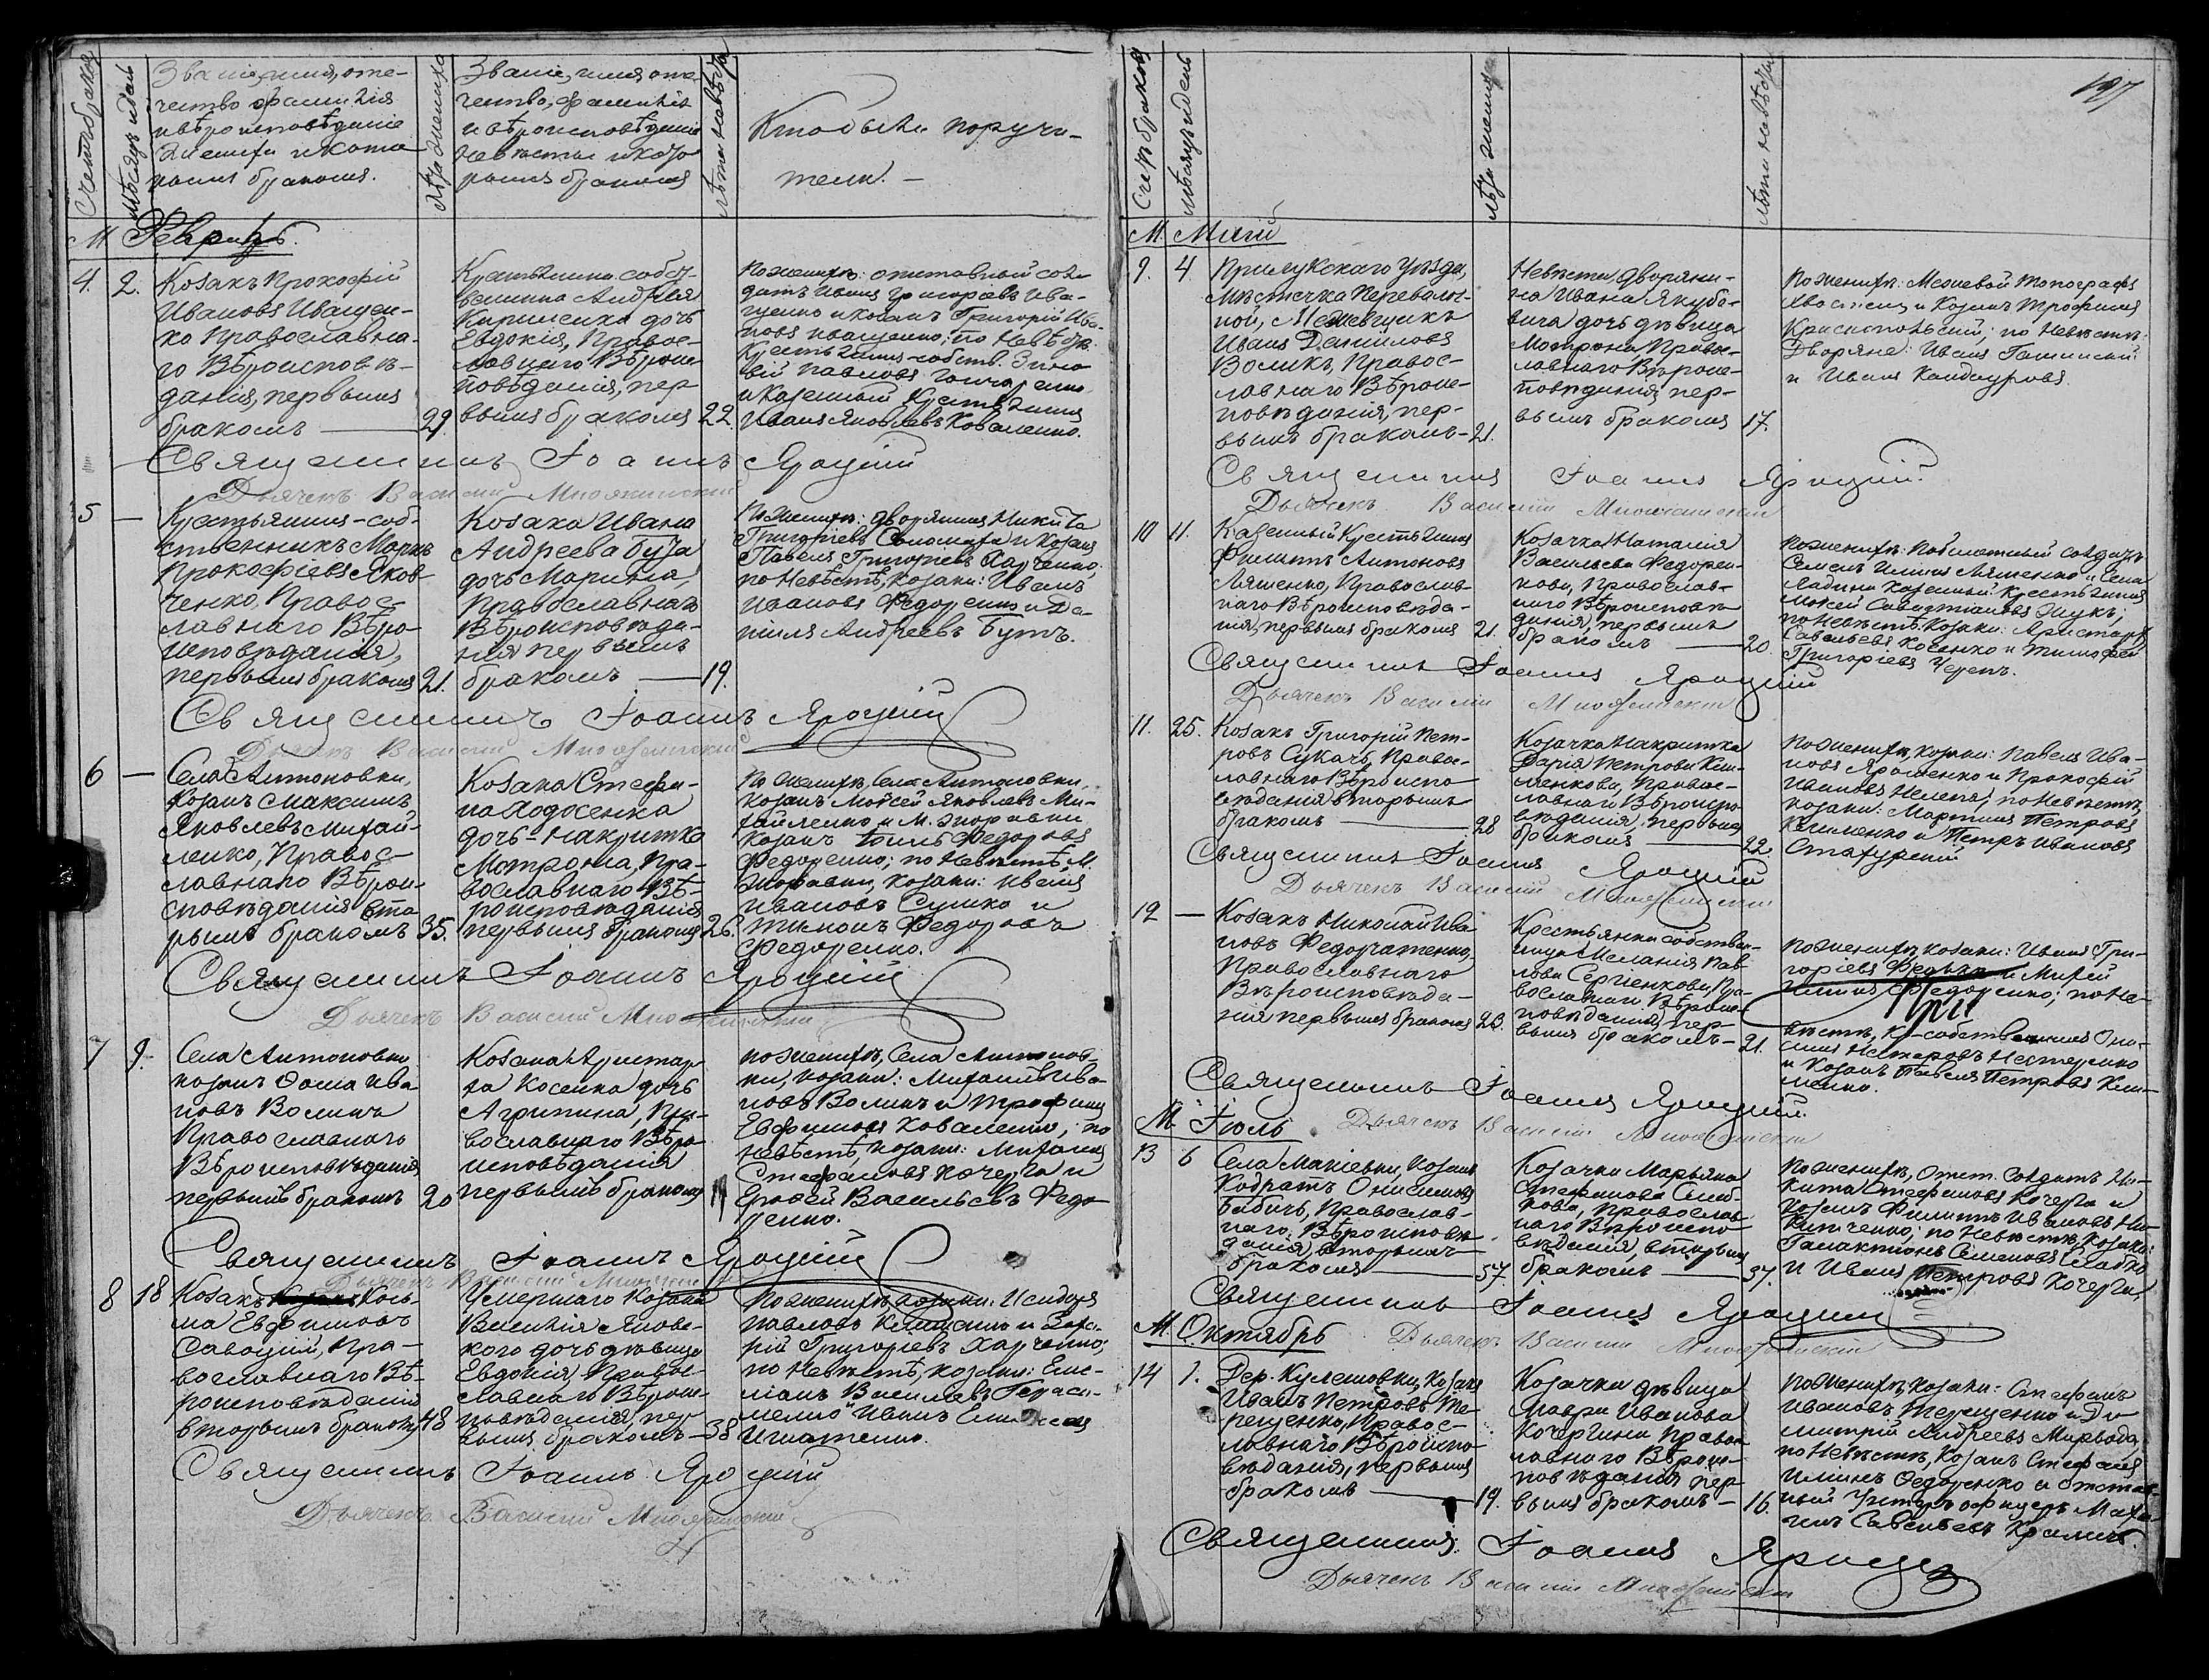 Счетъ браковъ
Мѣсяцъ и день
Званіе, имя, оте-
чество фамилія
и вѣроисповѣданіе
жениха и кото
рымъ бракомъ.
Лѣта жениха
Званіе, имя, оте-
чество, фамилія
и вѣроисповѣданіе
невѣсты и кото
рымъ бракомъ
Лѣта невѣсты
Кто были поручи-
тели. —
М. Февраль.
4. 2.
Козакъ Прокофій
Ивановъ Иващен-
ко Православна-
го Вѣроисповѣ-
данія, первымъ
бракомъ — 29.
Крестьянина собст-
венника Андрея
Кириленка дочь
Евдокія, Правос-
лавнаго Вѣроис-
повѣданія, пер
вымъ бракомъ 22.
По женихѣ: отставный сол-
датъ Иванъ Григорьевъ Ива-
щенко и козакъ Григорій Ива-
новъ Иващенко; по Невѣстѣ:
Крестьянинъ-собств. Зино-
вій Павловъ Гончаренко
и Казенный Крестьянинъ
Иванъ Яковлевъ Коваленко.
Священникъ Іоаннъ Яроцкій
Дьячекъ Василій
5 —
Крестьянинъ-соб-
ственникъ Марко
Прокофіевъ Яков
ченко, Правос-
лавнаго Вѣро-
исповѣданія,
первымъ бракомъ 21.
Козака Ивана
Андреева Бута
дочь Марина,
Православнаго
Вѣроисповѣда-
нія первымъ
бракомъ — 19.
По женихѣ: дворянинъ Никита
Григорьевъ и козакъ
Павелъ Григорьевъ Харченко;
по Невѣстѣ, Козаки: Иванъ
Ивановъ Федоренко и Да-
ніилъ Андреевъ Бутъ.
Священникъ Іоаннъ Яроцкій
Дьячекъ Василій
6 —
Села Антоновки,
Козакъ Максимъ
Яковлевъ Михай-
ленко, Правос-
лавнаго Вѣрои-
сповѣданія вто
рымъ бракомъ 35.
Козака Стефа-
на Ходосенка
дочь - накритка
Мотрона, Пра-
вославнаго Вѣ-
роисповѣданія
первымъ бракомъ 26.
По женихѣ, Села Антоновки,
козакъ Моѵсей Яковлевъ Ми-
хайленко и М. Журавки
Козакъ Федоровъ
Федоренко; по Невѣстѣ, М.
Журавки, козаки: Иванъ
Ивановъ Сушко и
Тихонъ Федоровъ
Федоренко.
Священникъ Іоаннъ Яроцкій
Дьячекъ Василій
7 9.
Села Антоновки
козакъ Ѳома Ива
новъ Воликъ
Православнаго
Вѣроисповѣданія
первымъ бракомъ 20
Козака Аристар
ха Косенка дочь
Агрипина, Пра-
вославнаго Вѣро
исповѣданія
первымъ бракомъ
по женихѣ, Села Антонов-
ки, козаки: Михаилъ Ива-
новъ Воликъ и Трофимъ
Евфимовъ Коваленко; по
невѣстѣ, козаки: Михаилъ
Стефановъ Кочерга и
Ерофей Васильевъ Федо-
ренко.
Священникъ Іоаннъ Яроцкій
Дьячекъ Василій
8 18
Козакъ Козь-
ма Евфимовъ
Савоцкій, Пра-
вославнаго Вѣ-
роисповѣданія
вторымъ бракомъ 48
Умершаго Козака
Василія Яновс-
кого дочь дѣвица
Евдокія, Правос-
лавнаго Вѣроис-
повѣданія, пер
вымъ бракомъ — 38
По женихѣ, козаки: Исидоръ
Павловъ Клименко и Заха-
рій Григорьевъ Харченко;
по Невѣстѣ, козаки: Еме-
ліанъ Васильевъ Гераси-
менко и Иванъ
Игнатенко.
Священникъ Іоаннъ Яроцкій
Дьячекъ Василій
197
Счетъ браковъ
Мѣсяцъ и день
Лѣта жениха
Лѣта невѣсты
М. Маій
9. 4
Прилукскаго Уѣзда,
Мѣстечка Переволоч-
ной, Межевщикъ
Иванъ Даниловъ
Воликъ, Правос-
лавнаго Вѣроис-
повѣданія, пер-
вымъ бракомъ — 21.
Невѣста дворяни-
на Ивана Якубо-
вича дочь дѣвица
Мотрона Правос-
лавнаго Вѣроис-
повѣданія, пер-
вымъ бракомъ 17.
По женихѣ: Межевой Топографъ
и Козакъ Трофимъ
по Невѣстѣ:
Дворяне: Иванъ
и Иванъ Кандауровъ.
Священникъ Іоаннъ Яроцкій.
Дьячекъ Василій
10 11.
Казенный Крестьянинъ
Филиппъ Антоновъ
Ляшенко, Православ-
наго Вѣроисповѣда-
нія, первымъ бракомъ 21.
Козачка Наталія
Васильева Федорен-
кова, Православ-
наго Вѣроисповѣ
данія, первымъ
бракомъ — 20.
По женихѣ: Побилетный Солдатъ
Семенъ Ильинъ Ляшенко и Села
Казенный Крестьянинъ
Моѵсей Жукъ;
по Невѣстѣ, Козаки: Аристархъ
Савельевъ Косенко и Тимофей
Григорьевъ Черепъ.
Священникъ Іоаннъ Яроцкій
Дьячекъ Василій
11. 25.
Козакъ Григорій Пет-
ровъ Сукачъ, Право-
славнаго Вѣроиспо
вѣданія вторымъ
бракомъ — 28
Козачка Накритка
Дарія Петрова Кли-
менкова, Правос-
лавнаго Вѣроиспо
вѣданія, первымъ
бракомъ — 22.
По женихѣ, козаки: Павелъ Ива-
новъ Ярошенко и Прокофій
Ивановъ Нелепа; по Невѣстѣ,
козаки: Мартинъ Петровъ
Клименко и Петръ Ивановъ
Священникъ Іоаннъ Яроцкій
Дьячекъ Василій
12 —
Козакъ Николай Ива
новъ Федорченко,
Православнаго
Вѣроисповѣда-
нія первымъ бракомъ 23.
Крестьянка собствен-
ница Меланія Пав-
лова Сергіенкова, Пра-
вославнаго Вѣроис-
повѣданія, пер-
вымъ бракомъ — 21.
По женихѣ, козаки: Иванъ Гри-
горіевъ и Михей
Федоренко; по Не-
вѣстѣ, Кр-собственникъ Они-
симъ Несторовъ Нестеренко
и Козакъ Павелъ Петровъ Кли-
менко.
Священникъ Іоаннъ Яроцкій.
М. Іюль
Дьячекъ Василій
13 6
Села Макіевки, Козакъ
Кодратъ Онисимовъ
Бабичъ, Православ-
наго, Вѣроисповѣ-
данія, вторымъ
бракомъ — 57.
Козачка Марьяна
Стефанова Слаб-
кова, православ
наго Вѣроиспо-
вѣданія, вторымъ
бракомъ — 37.
По женихѣ, Отст. Солдатъ Ни-
кита Стефановъ Кочерга и
козакъ Филиппъ Ивановъ Ни-
китченко; по Невѣстѣ, Козаки:
Галактіонъ Семеновъ Слабко
и Иванъ Петровъ Кочерга,
Священникъ Іоаннъ Яроцкій
М. Октябрь
Дьячекъ Василій
14 1.
Дер. Кулешовки, Козакъ
Иванъ Петровъ Те-
рещенко, Правос-
лавнаго Вѣроиспо-
вѣданія, первымъ
бракомъ — 19.
Козачка дѣвица
Мавра Иванова
Кочергина Правос-
лавнаго Вѣроис-
повѣданія пер-
вымъ бракомъ — 16.
По женихѣ, Козаки: Стефанъ
Ивановъ Терещенко и Ди-
митрій Андреевъ Мирвода;
по Невѣстѣ, Козакъ Стефанъ
Ильинъ Ѳедоренко и отстав-
ный Унтеръ офицеръ
Савельевъ
Священникъ Іоаннъ Яроцкій
Дьячекъ Василій